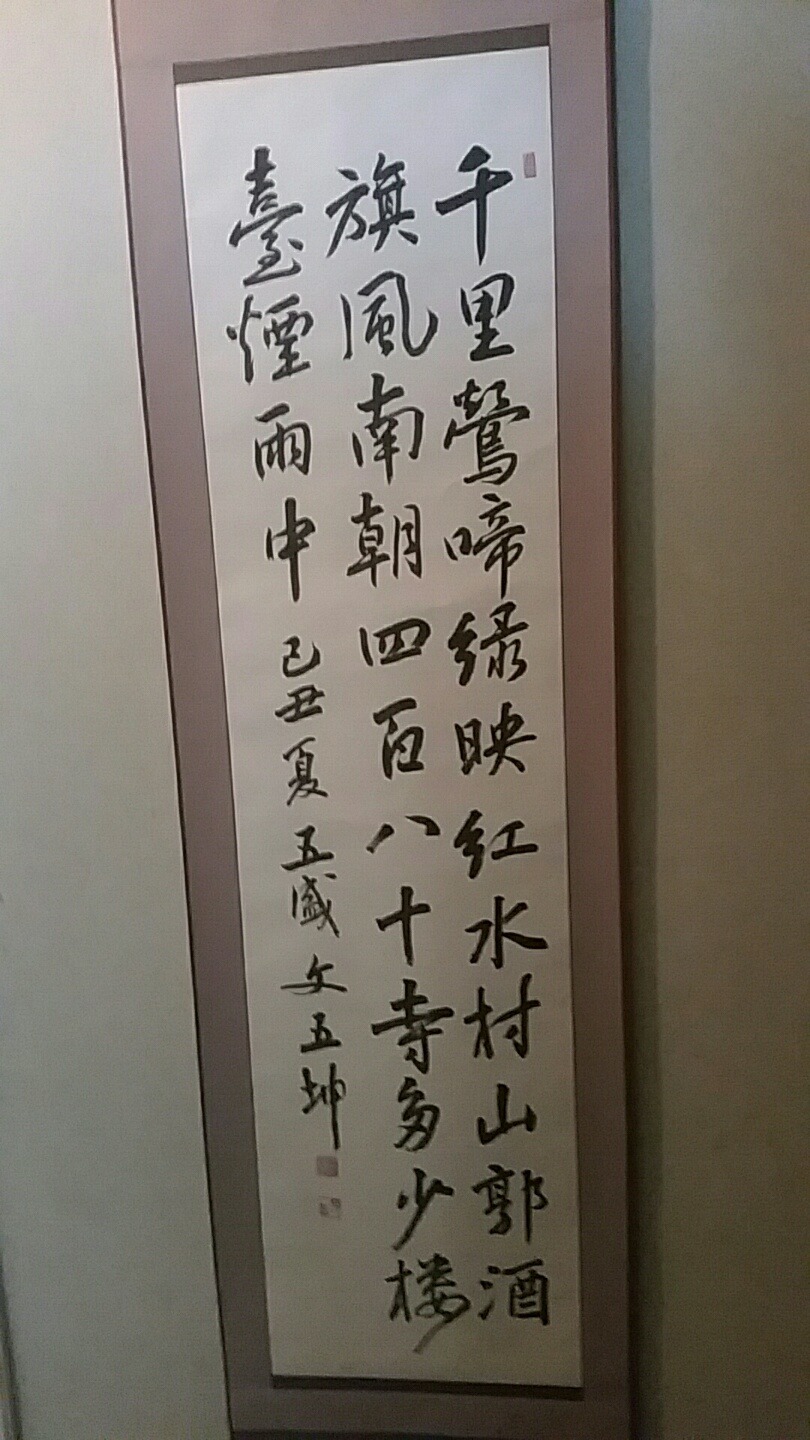 千里鶯啼绿映红水村山郭酒
旗風南朝四百八十寺多少楼
臺煙雨中 己丑夏 五盛文五坤